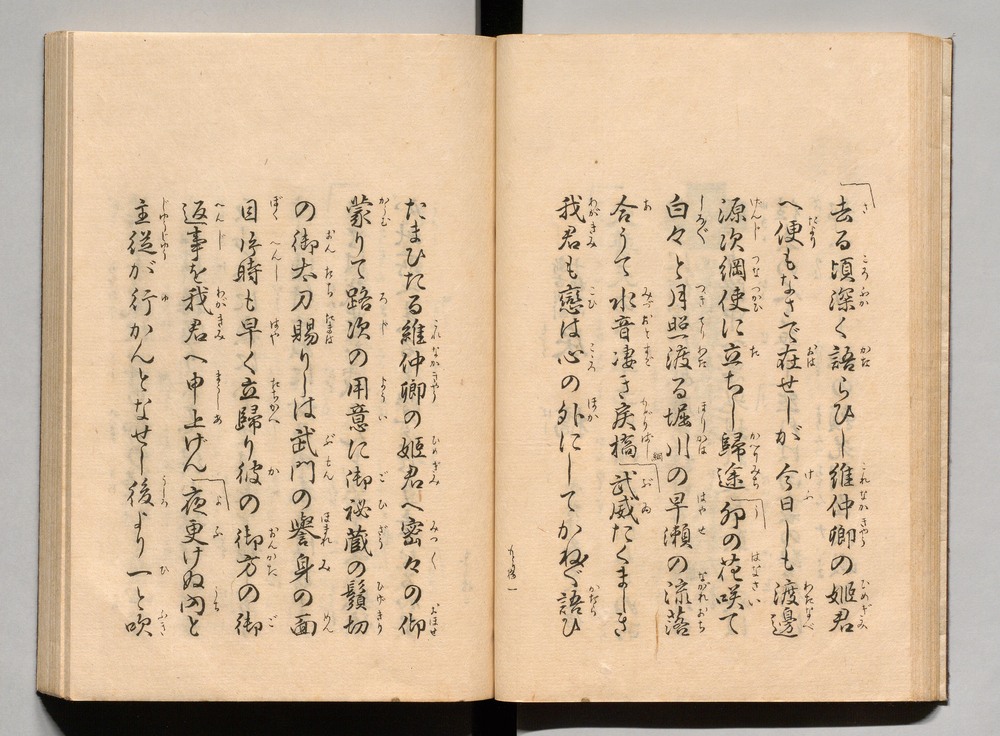 去る頃深く語らひし維仲卿の姫君
へ便もなさで在せしが今日しも渡邊
源次綱使に立ちし歸途卯の花咲て
白々と月照渡る堀川の早瀬の流落
合うて水音凄き戻橋武威たくましき
我君も戀は心の外にしてかねて語ひ
たまひたる維仲卿の姫君へ密々の御
蒙りて路次の用意に御祕蔵の鬚切
の御太刀賜りしは武門の譽身の面
目片時も早く立歸り彼の御方の御
返事を我君へ申上げん夜更けぬ内と
主従が行かんとなせし後より一と吹